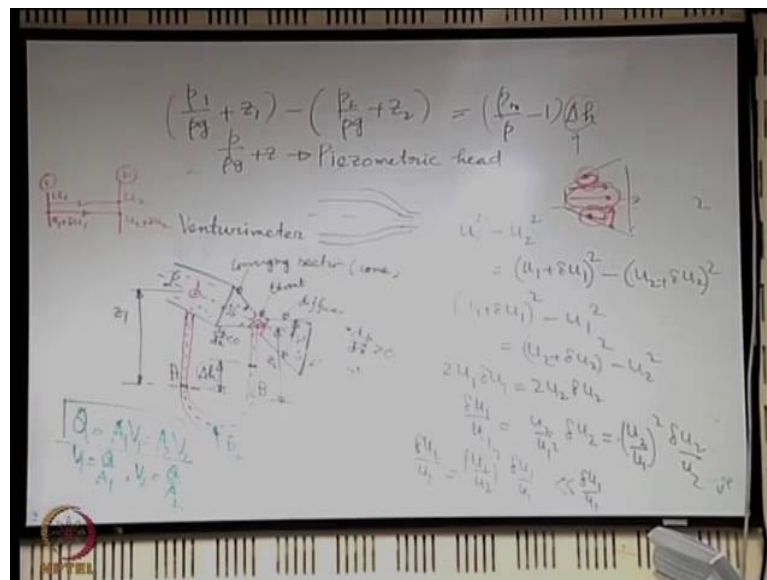 (p1/ρg + z1) − (p2/ρg + z2) = (ρm/ρ − 1)Δh
p/ρg + z → Piezometric head
① ②
u1 u2
u1+δu1 u2+δu2
Venturimeter
Converging section (cone)
throat
z1
A
Δh
B
Q = A1V1 = A2V2
V1 = Q/A1, V2 = Q/A2
u1² − u2²
= (u1+δu1)² − (u2+δu2)²
(u1+δu1)² − u1²
= (u2+δu2)² − u2²
2u1δu1 = 2u2δu2
δu1/u1 = u2/u1² δu2 = (u2/u1)² δu2/u2
δu2/u2 = (u1/u2)² δu1/u1 << δu1/u1
NPTEL